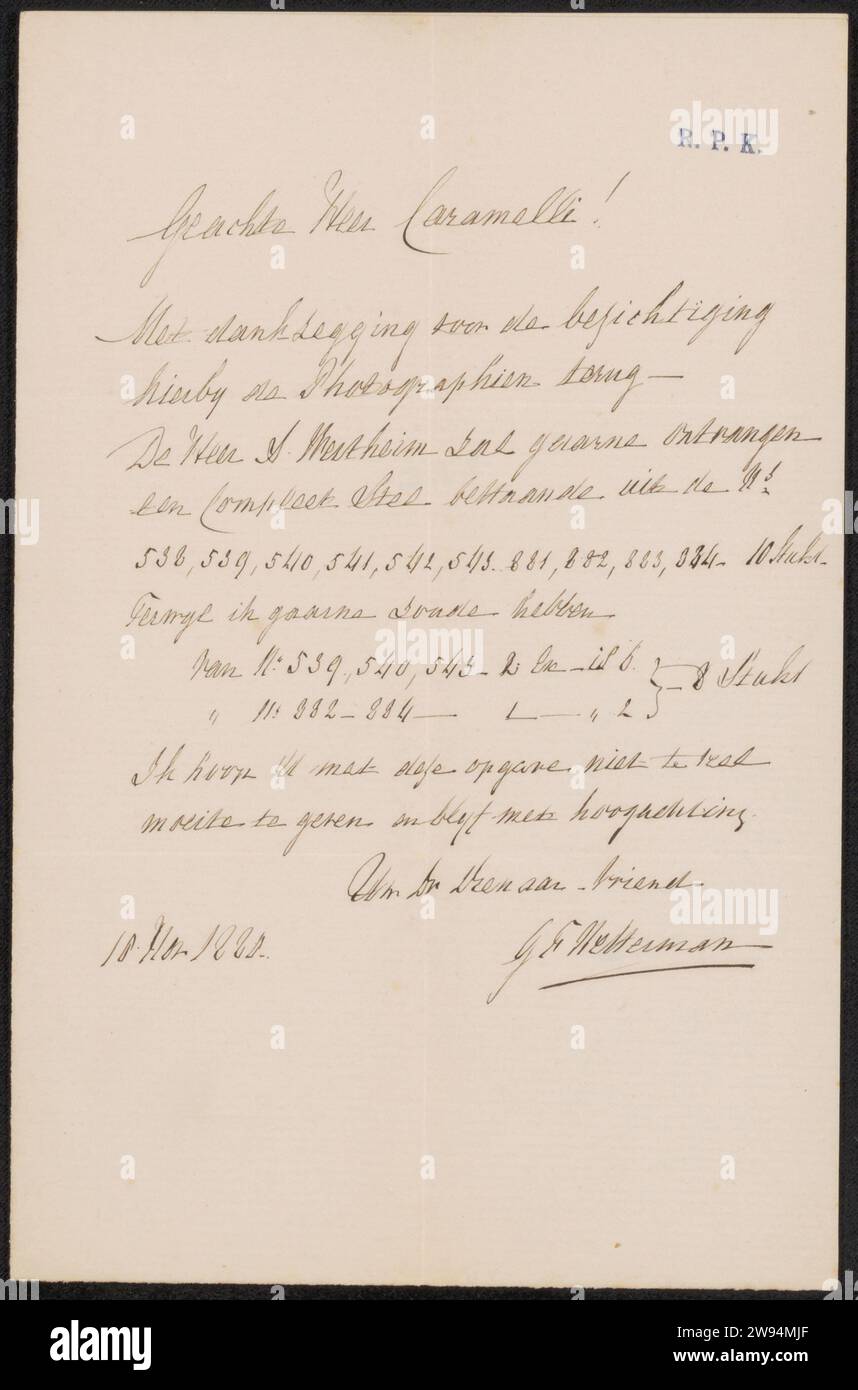 R. P. K.
Geachte Heer Caramelli!
Met dankzegging voor de bezichtiging
hierby de Photographien terug —
De Heer S. Westheim zal gaarne ontvangen
een Compleet Stel bestaande uit de Ns
538, 539, 540, 541, 542, 543. 881, 882, 883, 884 - 10 Stuks -
Terwyl ik gaarne zoude hebben
Van No 539, 540, 543 - 2 Ex - is 6.
" Ns 882 - 884 — 1 — " 2 } - 8 Stuks
Ik hoop U met deze opgave niet te veel
moeite te geven en blyf met hoogachting
Uw Dw Dienaar - Vriend
10 Nov 1888.
G F Westerman
alamy
Image ID: 2W94MJF
www.alamy.com